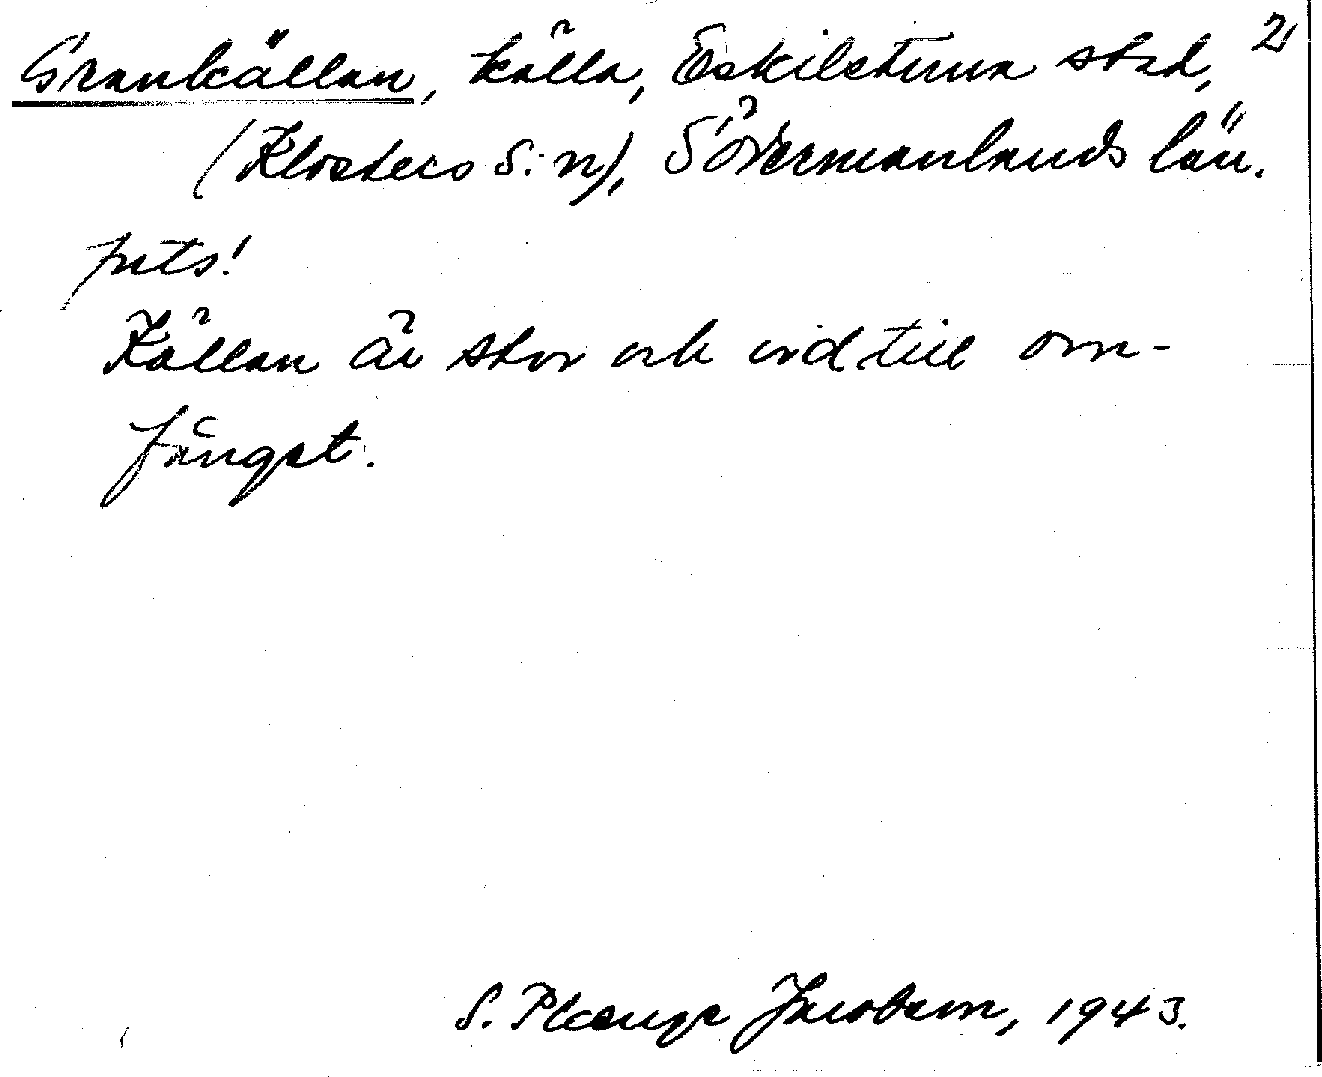 Grankällan, källa, Eskilstuna stad, 2)
(Klosters S:n), Södermanlands län.
forts!
Källan är stor och vid till om-
fånget.
S. Plænge Jacobson, 1943.